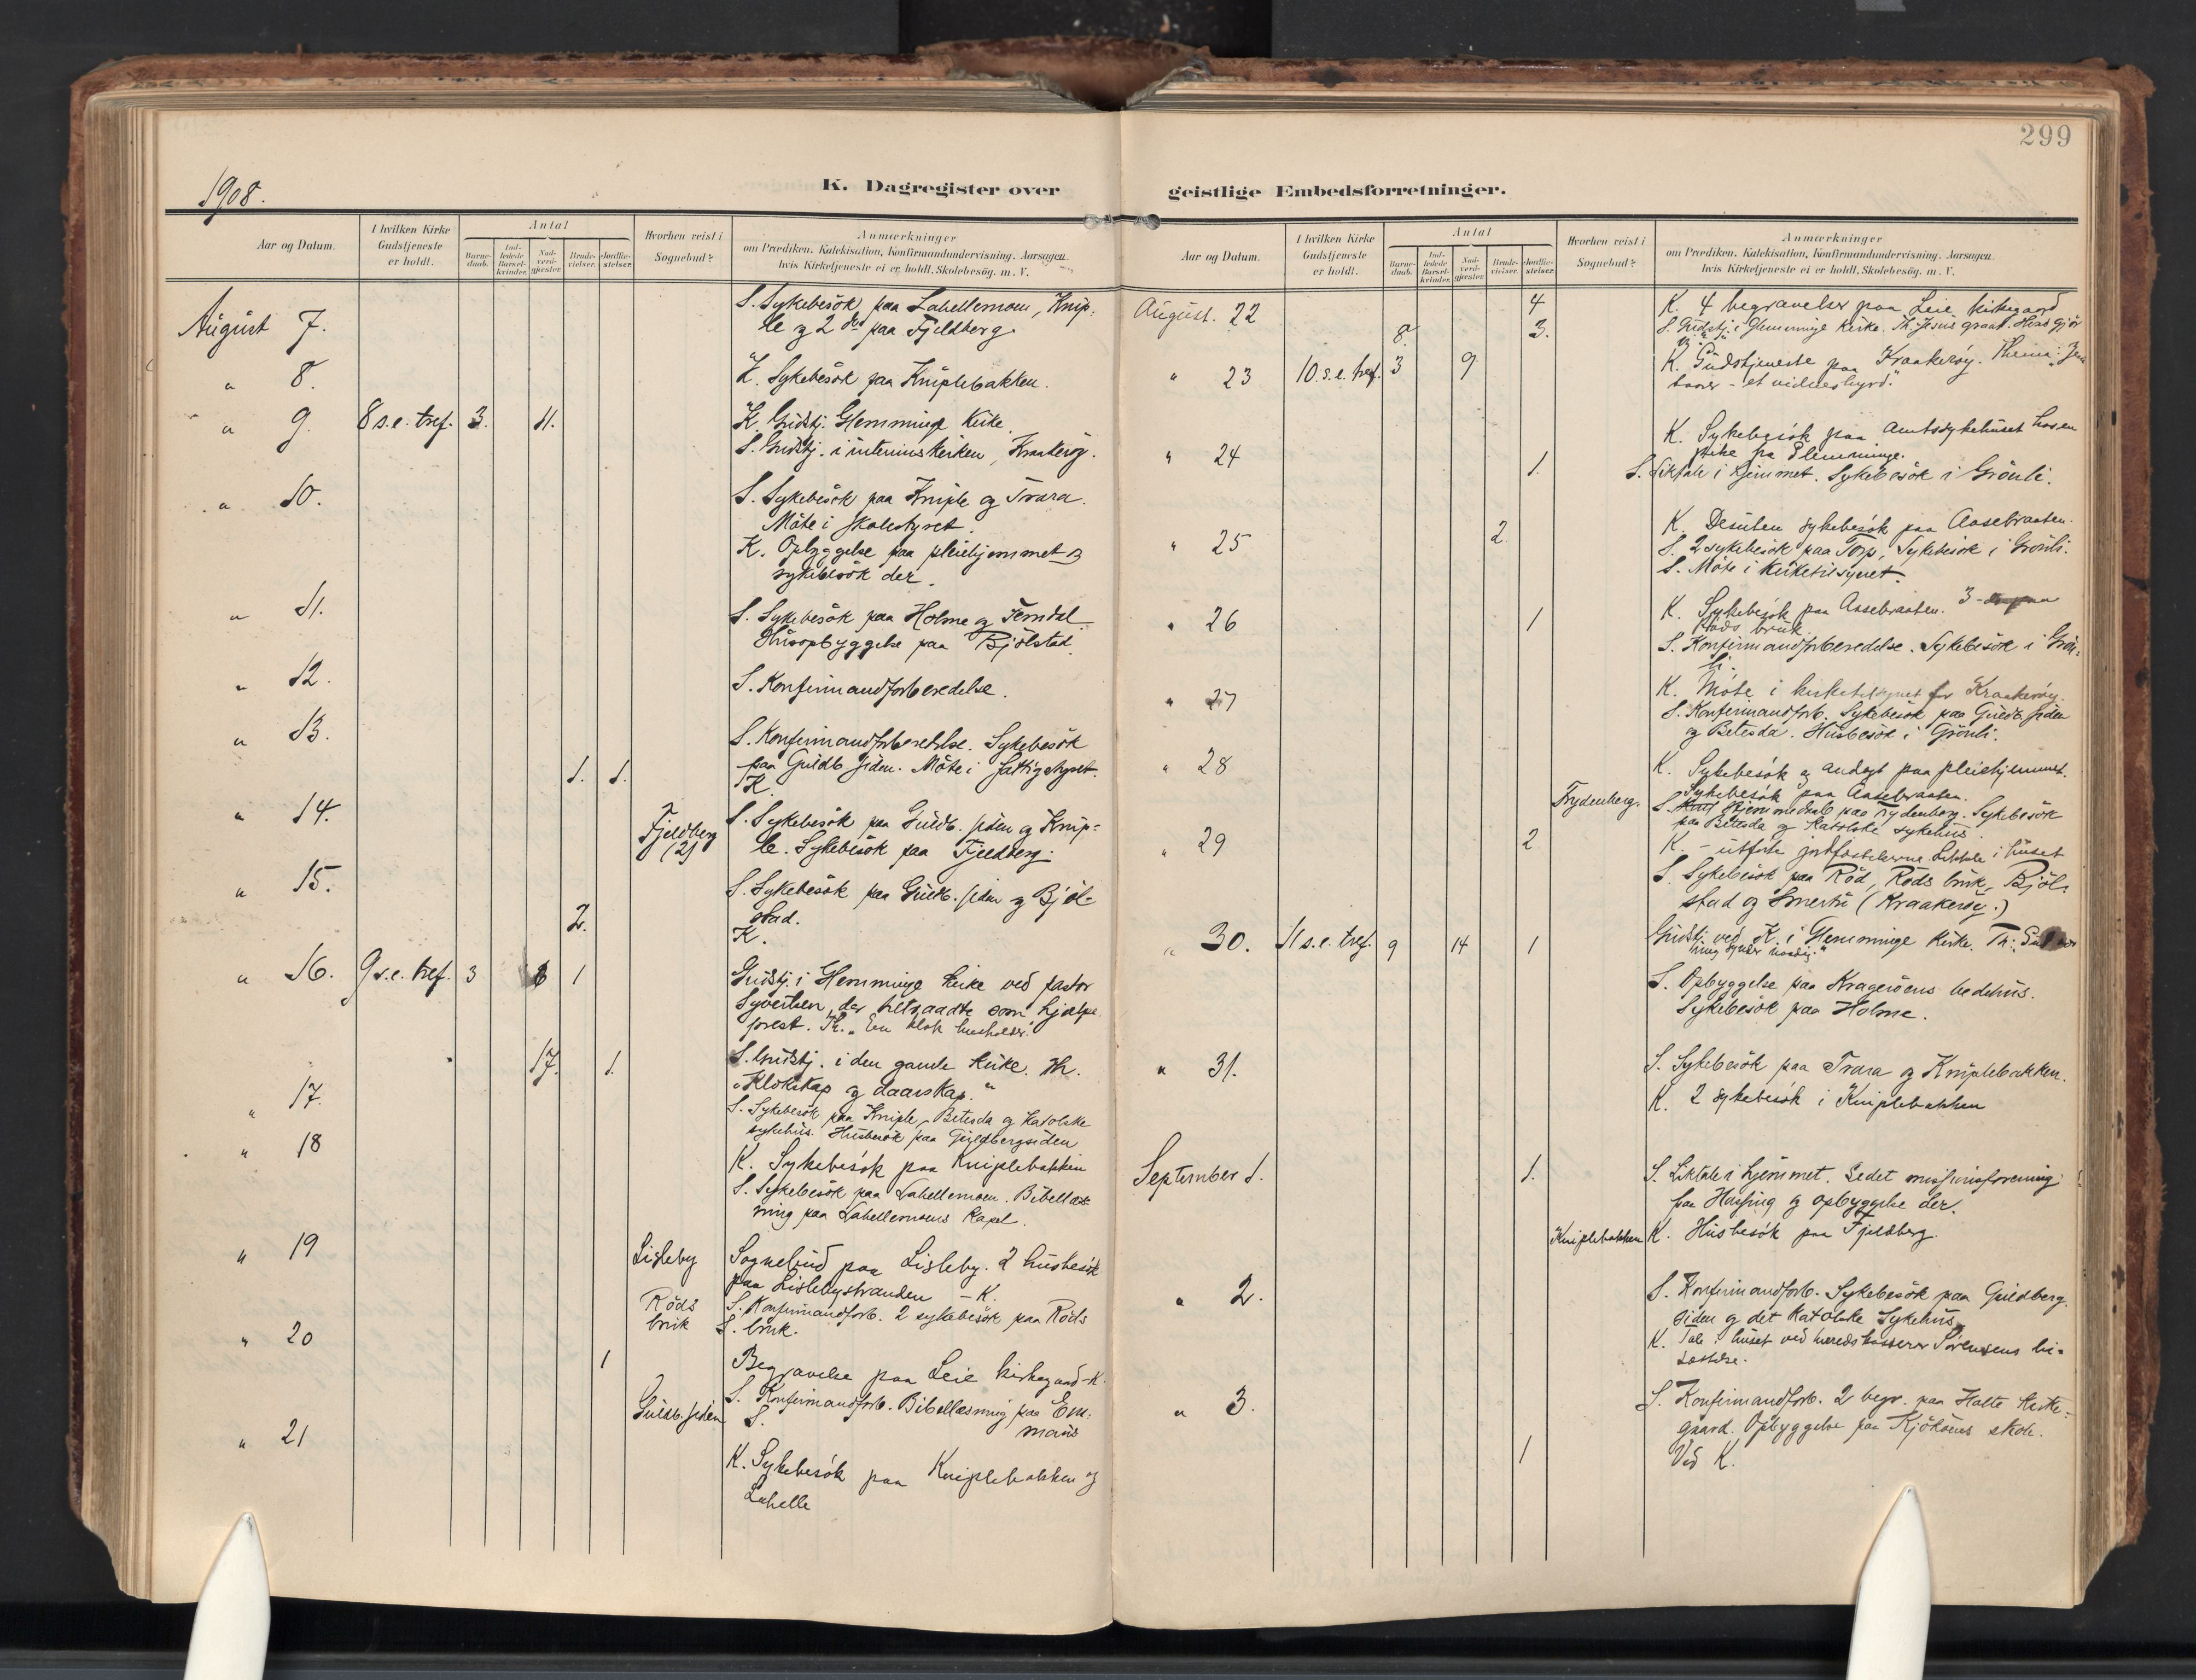 299
1908.
K. Dagregister over
geistlige Embedsforretninger.
Aar og Datum.
I hvilken Kirke Gudstjeneste er holdt.
Antal
Barnedaab.
Indledede Barselkvinder.
Nadverdgjæster.
Brudevielser.
Jordfæstelser.
Hvorhen reist i Sognebud?
Anmærkninger
om Prædiken. Katekisation, Konfirmandundervisning. Aarsagen.
hvis Kirketjeneste ei er holdt. Skolebesög. m. V.
August 7.
S. Sykebesök paa Lahellemoen, Knip=
le og 2 paa Fjeldberg.
" 8.
K. Sykebesök paa Kniplebakken.
" 9. 8 s.e. tref. 3. 11.
K. Gudstj. Glemminge Kirke.
S. Gudstj. i interimskirken, Kraakeröy.
" 10.
S. Sykebesök paa Kniple og Trara.
Möte i skolestyret.
K. Opbyggelse paa pleiehjemmet og
sykebesök der.
" 11.
S. Sykebesök paa Holme og Femdal
Husopbyggelse paa Bjölstad.
" 12.
S. Konfirmandforberedelse.
" 13.
S. Konfirmandforberedelse. Sykebesök
paa Guldb.siden. Möte i fattigstyret.
1. 1. K.
" 14. Fjeldberg (2)
S. Sykebesök paa Guldb.siden og Knip=
le. Sykebesök paa Fjeldberg.
" 15.
S. Sykebesök paa Guldb.siden og Bjöl-
stad.
2. K.
" 16. 9 s.e. tref. 3 8 1
Gudstj. i Glemminge kirke ved pastor
Syvertsen, der tiltraadte som hjælpe
prest. Th. "En klok husholder."
17. 1.
S. Gudstj. i den gamle kirke. Th.
"Klokskap og daarskap."
" 17.
S. Sykebesök paa Kniple, Betesda og Katolske
sykehus. Husbesök paa Guldbergsiden
" 18
K. Sykebesök paa Kniplebakken
S. Sykebesök paa Lahellemoen. Bibellæs
ning paa Lahellemoens Kapel.
" 19 Lisleby
Sognebud paa Lisleby. 2 husbesök
paa Lislebystranden - K.
Röds bruk
S. Konfirmandforb. 2 sykebesök paa Röds
S. bruk.
" 20 1
Begravelse paa Leie kirkegaard - K.
Guldb.siden
S. Konfirmandforb. Bibellæsning paa Em=
S. maus
" 21
K. Sykebesök paa Kniplebakken og
Lahelle
Aar og Datum.
I hvilken Kirke Gudstjeneste er holdt.
Antal
Barnedaab.
Indledede Barselkvinder.
Nadverdgjæster.
Brudevielser.
Jordfæstelser.
Hvorhen reist i Sognebud?
Anmærkninger
om Prædiken. Katekisation, Konfirmandundervisning. Aarsagen.
hvis Kirketjeneste ei er holdt. Skolebesög. m. V.
August. 22 4
K. 4 begravelser paa Leie kirkegaard
8. 3.
S. Gudstj. i Glemminge Kirke. Th. Jesus graat. Hvad gjör
vi?
" 23 10. s.e. tref. 3 9
K. Gudstjeneste paa Kraakeröy. Thema: "Jesu
taarer - et vidnesbyrd."
" 24
K. Sykebesök paa Amtssykehuset hos en
syke fra Glemminge.
1. S. Liktale i hjemmet. Sykebesök i Grönli.
" 25 2.
K. Desuten sykebesök paa Aasebraaten.
S. 2 sykebesök paa Torp, Sykebesök i Grönli.
S. Möte i Kirketilsynet.
" 26 1
K. Sykebesök paa Aasebraaten. 3
Röds bruk.
S. Konfirmandforberedelse. Sykebesök i Grön=
li.
" 27
K. Möte i kirketilsynet for Kraakeröy.
S. Konfirmandforb. Sykebesök paa Guldb.siden
og Betesda. Husbesök i Grönli.
" 28
K. Sykebesök og andagt paa pleiehjemmet.
Sykebesök paa Aasebraaten.
Frydenberg.
S. Hjemmedaab paa Frydenberg. Sykebesök
paa Betesda og Katolske sykehus.
" 29 2
K. - utförte jordfæstelserne. Liktale i huset
S. Sykebesök paa Röd, Röds bruk, Bjöl=
stad og Smertu (Kraakeröy.)
" 30. 11 s.e. tref. 9 14 1
Gudstj. ved K. i Glemminge kirke. Th:
S. Opbyggelse paa Krageröens bedehus.
Sykebesök paa Holme.
" 31.
S. Sykebesök paa Trara og Kniplebakken.
K. 2 sykebesök i Kniplebakken
September 1. 1.
S. Liktale i hjemmet. Ledet missionsforening
paa Hauging og opbyggelse der.
Kniplebakken
K. Husbesök paa Fjeldberg.
" 2.
S. Konfirmandforb. Sykebesök paa Guldberg.
siden og det Katolske Sykehus.
K. Tale i huset ved herredskasserer Sörensens bi=
sættelse.
" 3.
S. Konfirmandforb. 2 begr. paa Hatte kirke=
gaard. Opbyggelse paa Kjökönes skole.
1 Ved K.